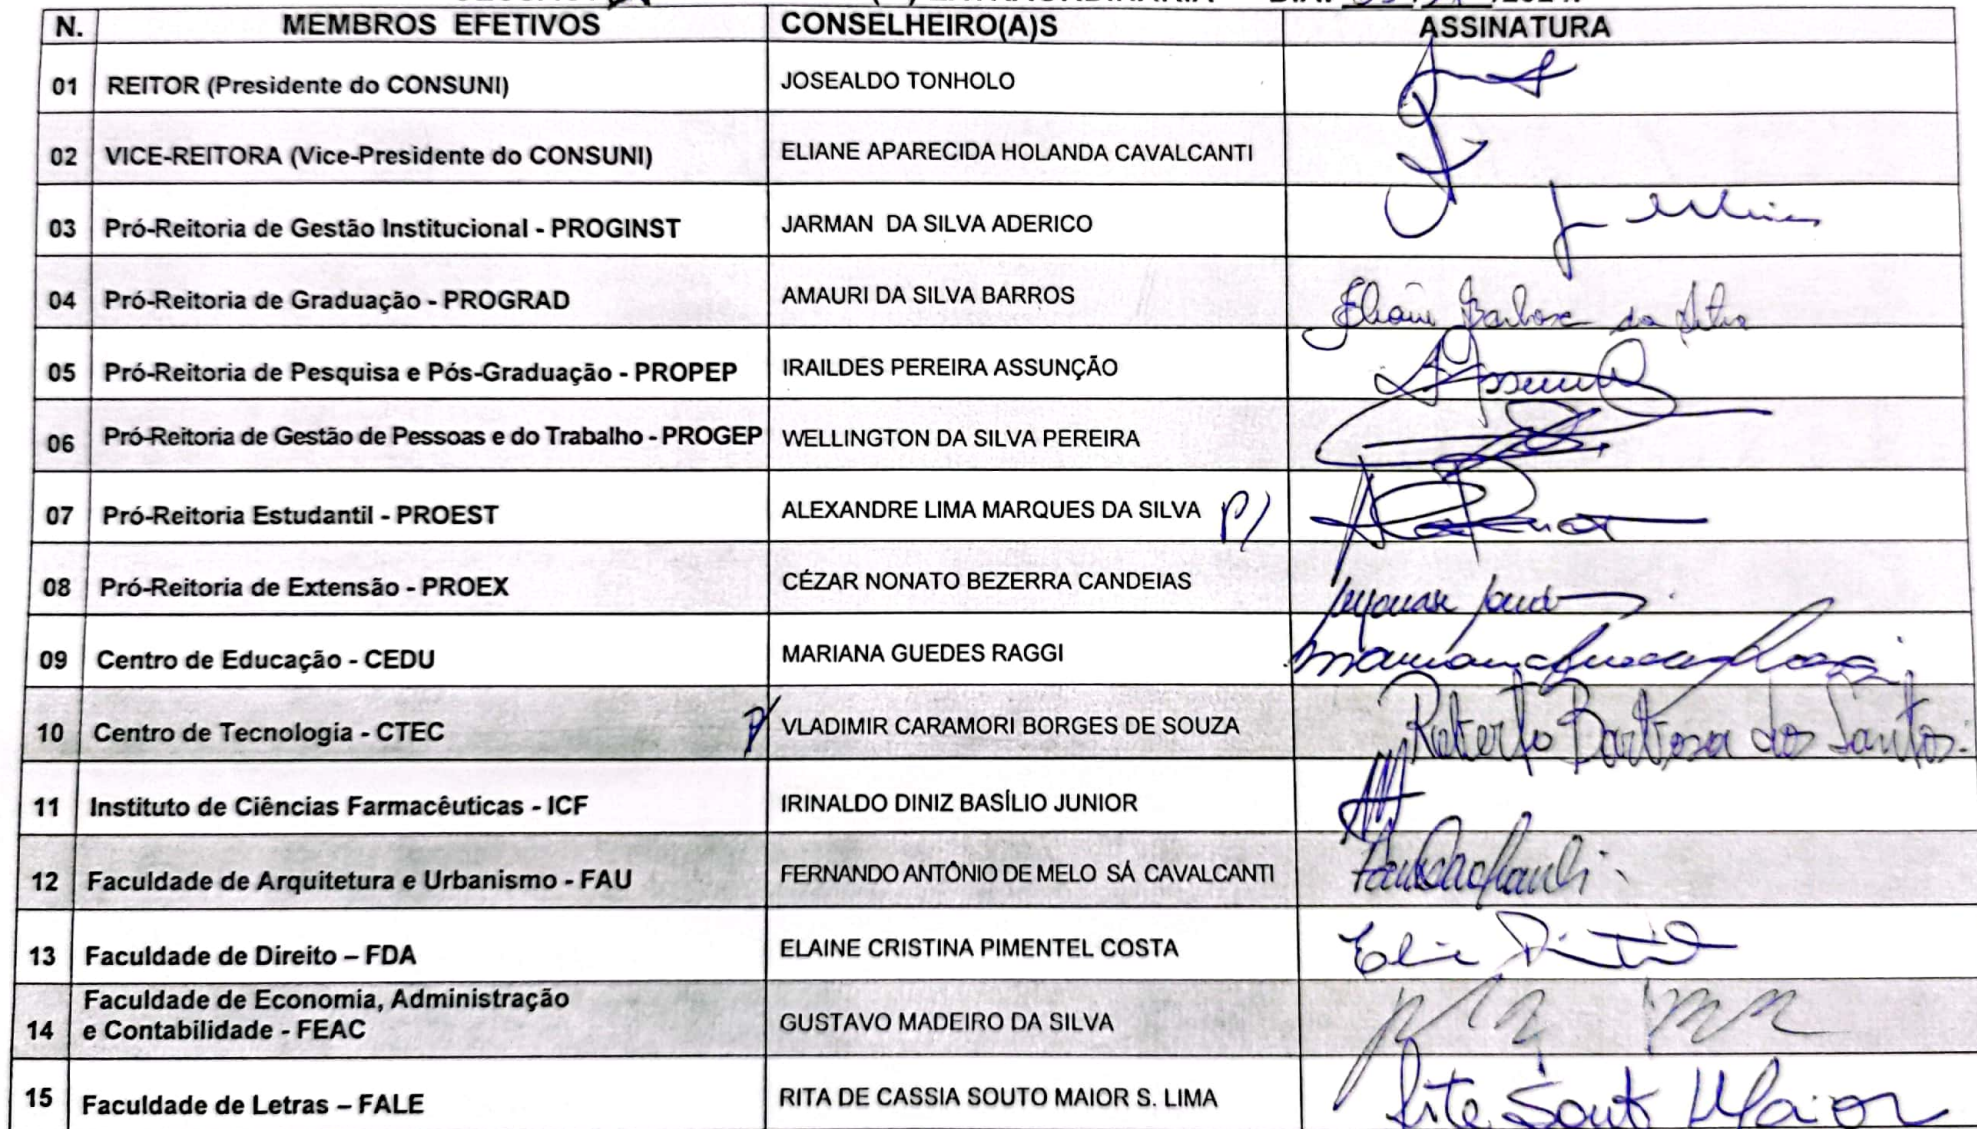 N. MEMBROS EFETIVOS CONSELHEIRO(A)S ASSINATURA
01 REITOR (Presidente do CONSUNI) JOSEALDO TONHOLO
02 VICE-REITORA (Vice-Presidente do CONSUNI) ELIANE APARECIDA HOLANDA CAVALCANTI
03 Pró-Reitoria de Gestão Institucional - PROGINST JARMAN DA SILVA ADERICO
04 Pró-Reitoria de Graduação - PROGRAD AMAURI DA SILVA BARROS Eliane Barbosa da Silva
05 Pró-Reitoria de Pesquisa e Pós-Graduação - PROPEP IRAILDES PEREIRA ASSUNÇÃO
06 Pró-Reitoria de Gestão de Pessoas e do Trabalho - PROGEP WELLINGTON DA SILVA PEREIRA
07 Pró-Reitoria Estudantil - PROEST ALEXANDRE LIMA MARQUES DA SILVA P/
08 Pró-Reitoria de Extensão - PROEX CÉZAR NONATO BEZERRA CANDEIAS
09 Centro de Educação - CEDU MARIANA GUEDES RAGGI Mariana Guedes Raggi
10 Centro de Tecnologia - CTEC P/ VLADIMIR CARAMORI BORGES DE SOUZA Roberto Barbosa dos Santos.
11 Instituto de Ciências Farmacêuticas - ICF IRINALDO DINIZ BASÍLIO JUNIOR
12 Faculdade de Arquitetura e Urbanismo - FAU FERNANDO ANTÔNIO DE MELO SÁ CAVALCANTI
13 Faculdade de Direito – FDA ELAINE CRISTINA PIMENTEL COSTA
14 Faculdade de Economia, Administração
e Contabilidade - FEAC GUSTAVO MADEIRO DA SILVA
15 Faculdade de Letras – FALE RITA DE CASSIA SOUTO MAIOR S. LIMA Rita Souto Maior